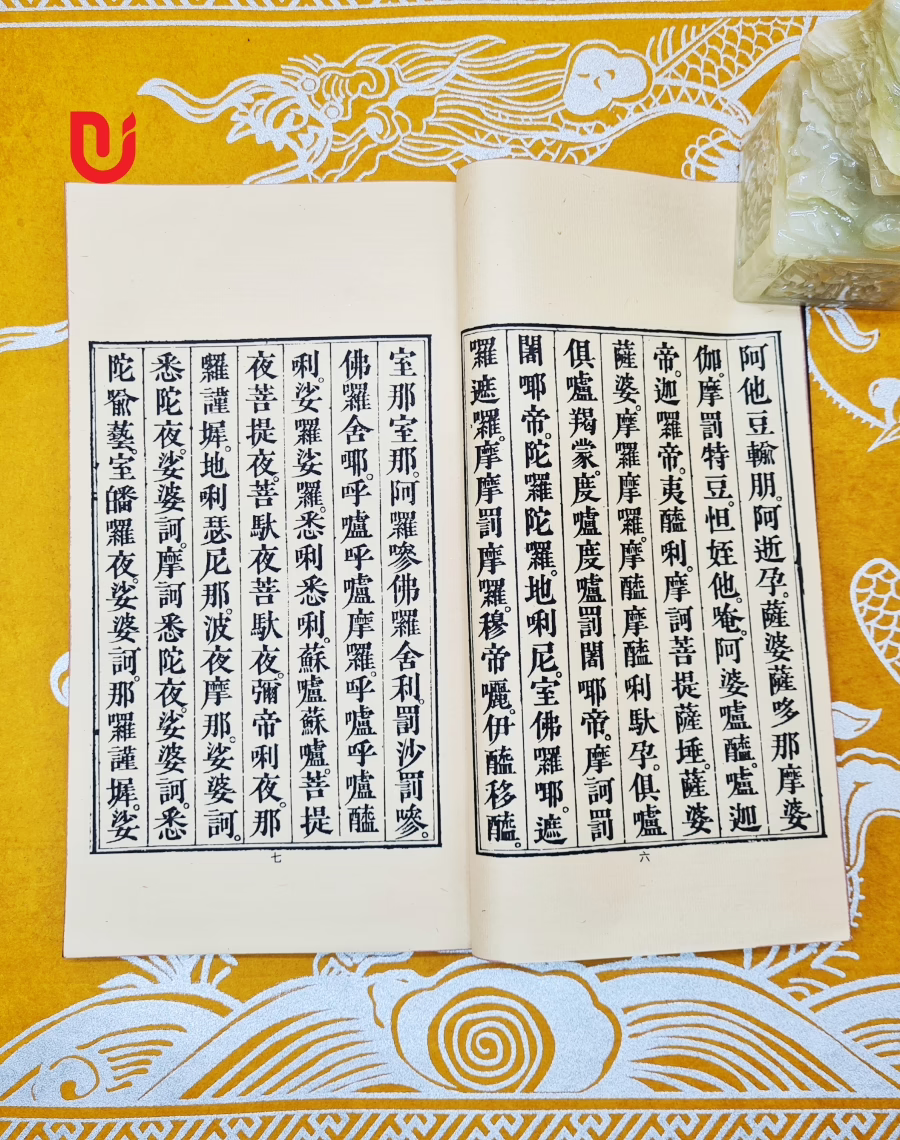 阿他豆輸朋。阿逝孕。薩婆薩哆那摩婆
伽。摩罰特豆。怛姪他。唵。阿婆嚧醯。嚧迦
帝。迦囉帝。夷醯唎。摩訶菩提薩埵。薩婆
薩婆。摩囉摩囉。摩醯摩醯唎馱孕。俱嚧
俱嚧羯蒙。度嚧度嚧罰闍㖿帝。摩訶罰
闍㖿帝。陀囉陀囉。地唎尼。室佛囉㖿。遮
囉遮囉。摩摩罰摩囉。穆帝囇。伊醯移醯。
六
室那室那。阿囉嘇佛囉舍利。罰沙罰嘇。
佛囉舍㖿。呼嚧呼嚧摩囉。呼嚧呼嚧醯
唎。娑囉娑囉。悉唎悉唎。蘇嚧蘇嚧。菩提
夜菩提夜。菩馱夜菩馱夜。彌帝唎夜。那
囉謹墀。地唎瑟尼那。波夜摩那。娑婆訶。
悉陀夜。娑婆訶。摩訶悉陀夜。娑婆訶。悉
陀喻藝。室皤囉夜。娑婆訶。那囉謹墀。娑
七